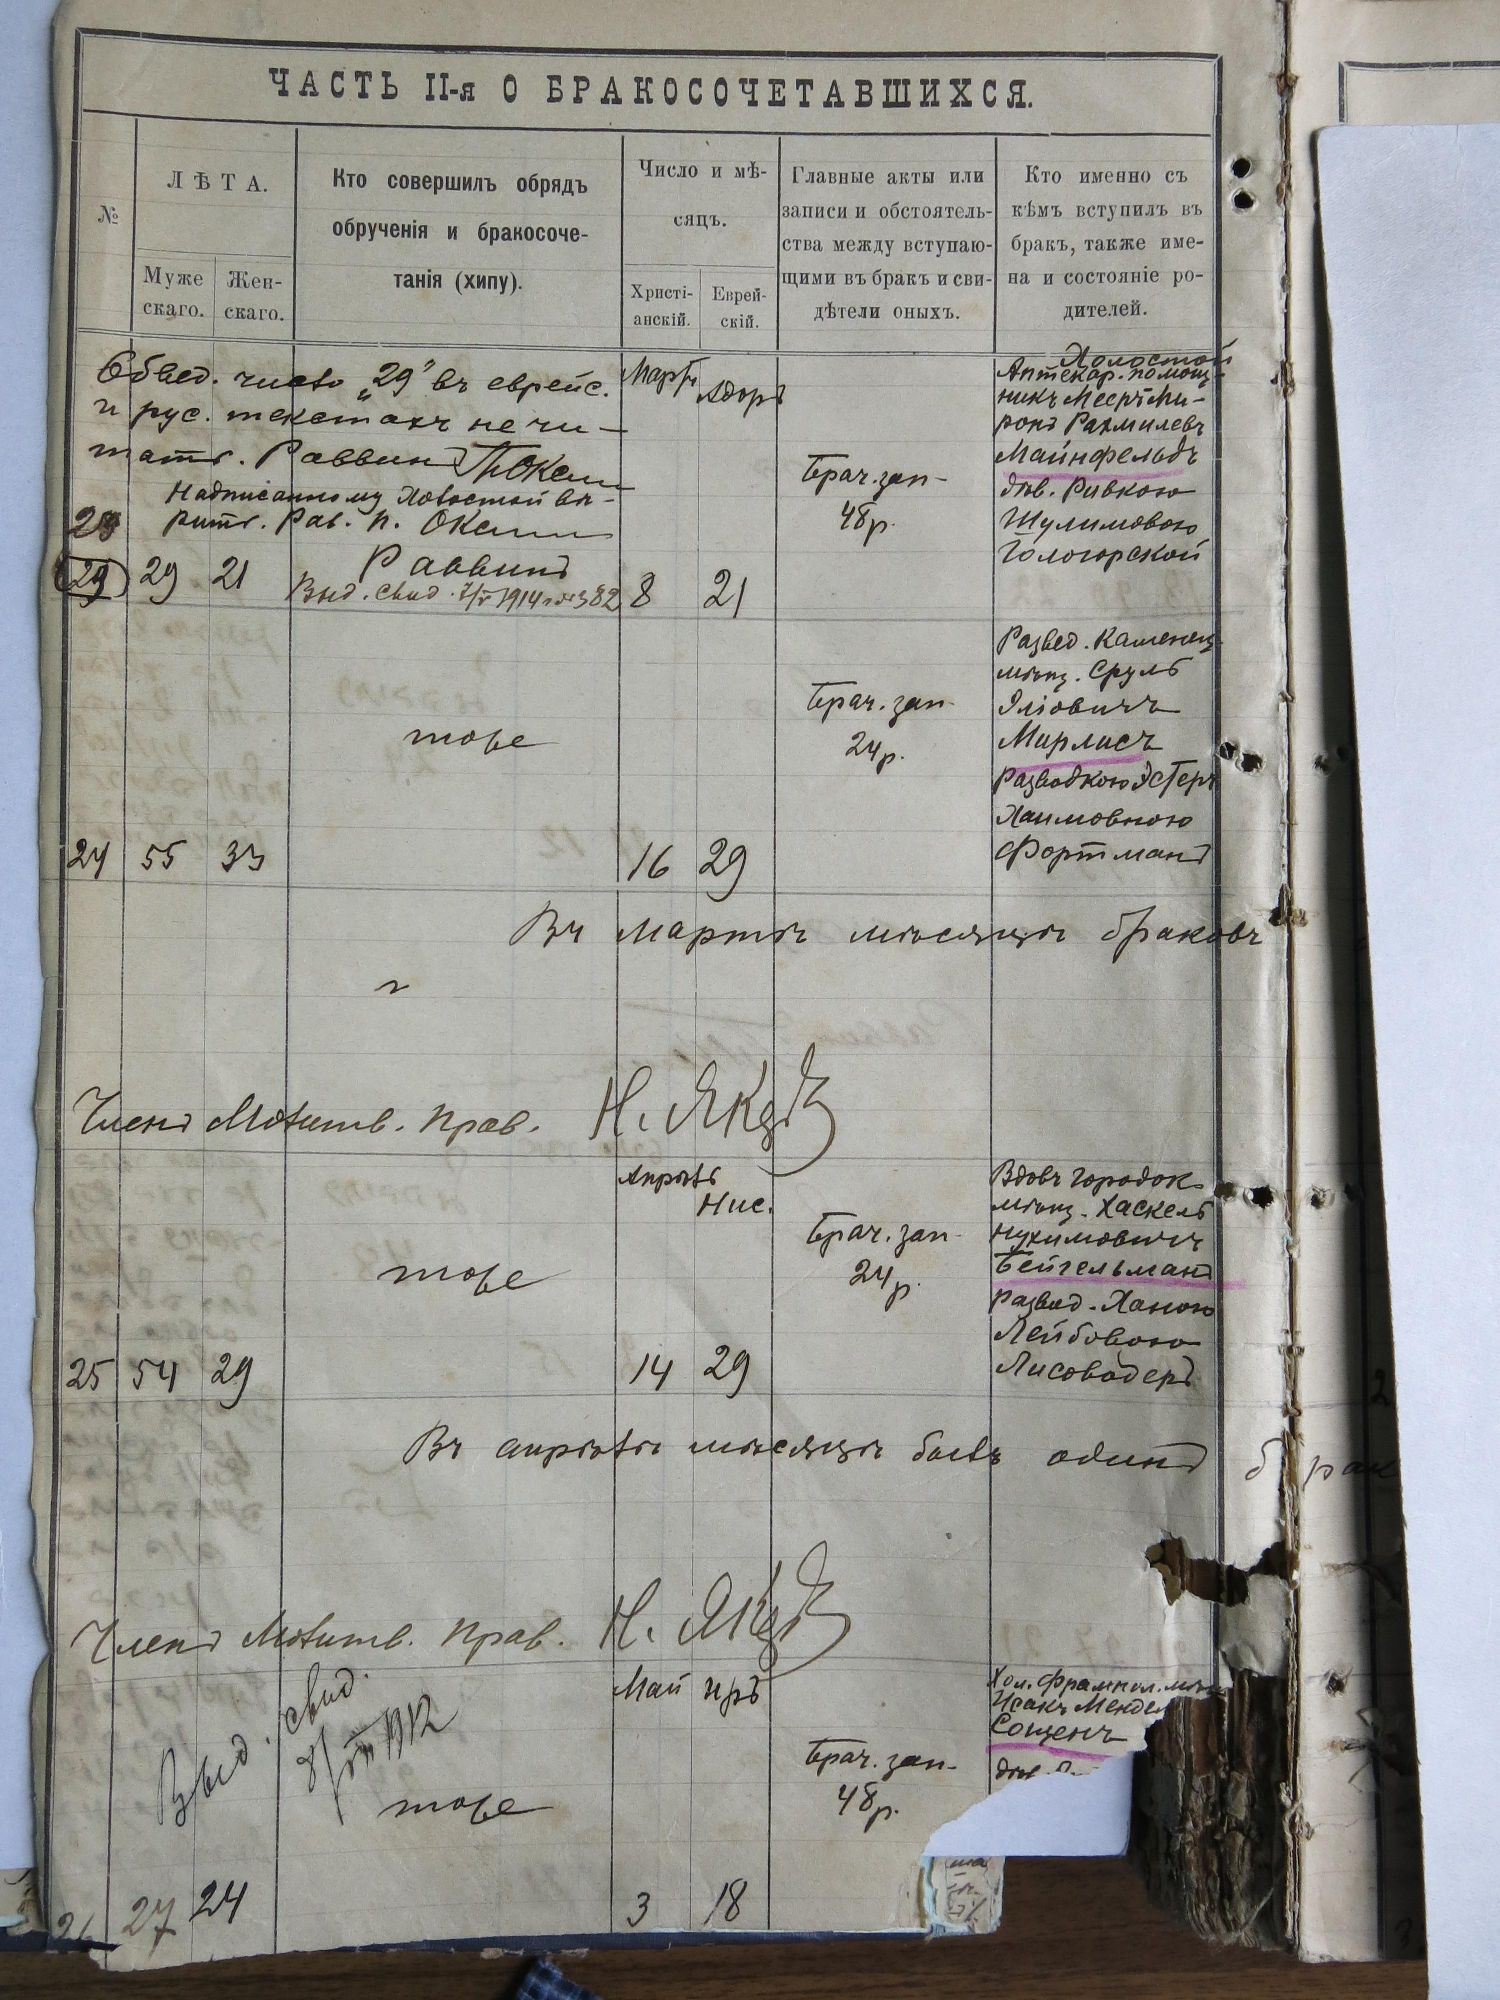 ЧАСТЬ II-я О БРАКОСОЧЕТАВШИХСЯ.
№
ЛѢТА.
Муже
скаго.
Жен-
скаго.
Кто совершилъ обрядъ
обрученія и бракосоче-
танія (хипу).
Число и мѣ-
сяцъ.
Христі-
анскій.
Еврей-
скій.
Главные акты или
записи и обстоятель-
ства между вступаю-
щими въ бракъ и сви-
дѣтели оныхъ.
Кто именно съ
кѣмъ вступилъ въ
бракъ, также име-
на и состояніе ро-
дителей.
Обвед. число „29" въ еврейс.
и рус. текстахъ не чи-
тать. Раввинъ
Надписанному Холостой вѣ-
рить. Рав.
23
29 29 21
Раввинъ
Выд. свид. 1914 г. № 382
Мартъ
Адоръ
8 21
Брач. зап-
48 р.
Холостой
Аптекар. помощ-
никъ Мееръ Ми-
ронъ Рахмилевъ
Майнфельдъ
дѣв. Ривкою
Шулимовою
Гологорской
24 55 33
тоже
16 29
Брач. зап-
24 р.
Развед. Каменец.
мѣщ. Сруль
Эліовичъ
Мирлисъ
разводкою Эстеръ
Хаимовною
Фортманъ
Въ мартѣ мѣсяцѣ браковъ
2
Членъ Молитв. Прав. Н. Якц
25 54 29
тоже
Апрѣль
Нис.
14 29
Брач. зап-
24 р.
Вдовъ Городок.
мѣщ. Хаскель
Нухимовичъ
Бейгельманъ
развед. Ханою
Лейбовою
Лисоводеръ
Въ апрѣлѣ мѣсяцѣ былъ одинъ брак
Членъ Молитв. Прав. Н. Якц
Выд. свид.
8/VIII 1912
26 27 24
тоже
Май Иръ
3 18
Брач. зап-
48 р.
Хол. Фрампол. мѣщ
Исакъ Мендел
Сощенъ
дѣв.